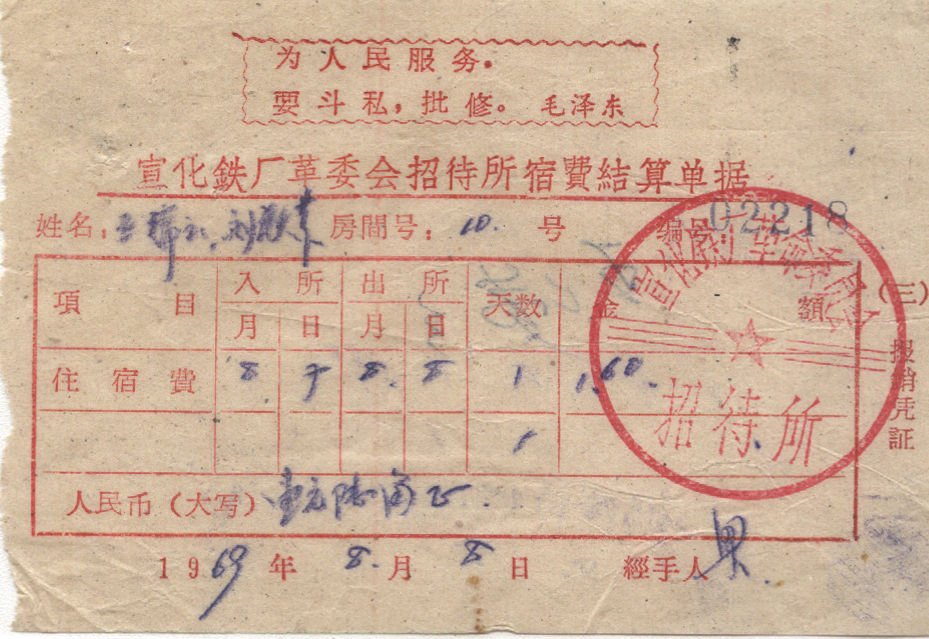 为人民服务。
要斗私，批修。毛泽东
宣化鉄厂革委会招待所宿費結算单据
姓名： 房間号：10. 号 编号 02218
項目 入所 出所 天数 金額
月 日 月 日
住宿費 8 7 8. 8 1 1.60.
1
人民币（大写）壹元陆角正.
1969年 8.月 8日 經手人
（三）报銷凭証
宣化鉄厂革命委員会
招待所